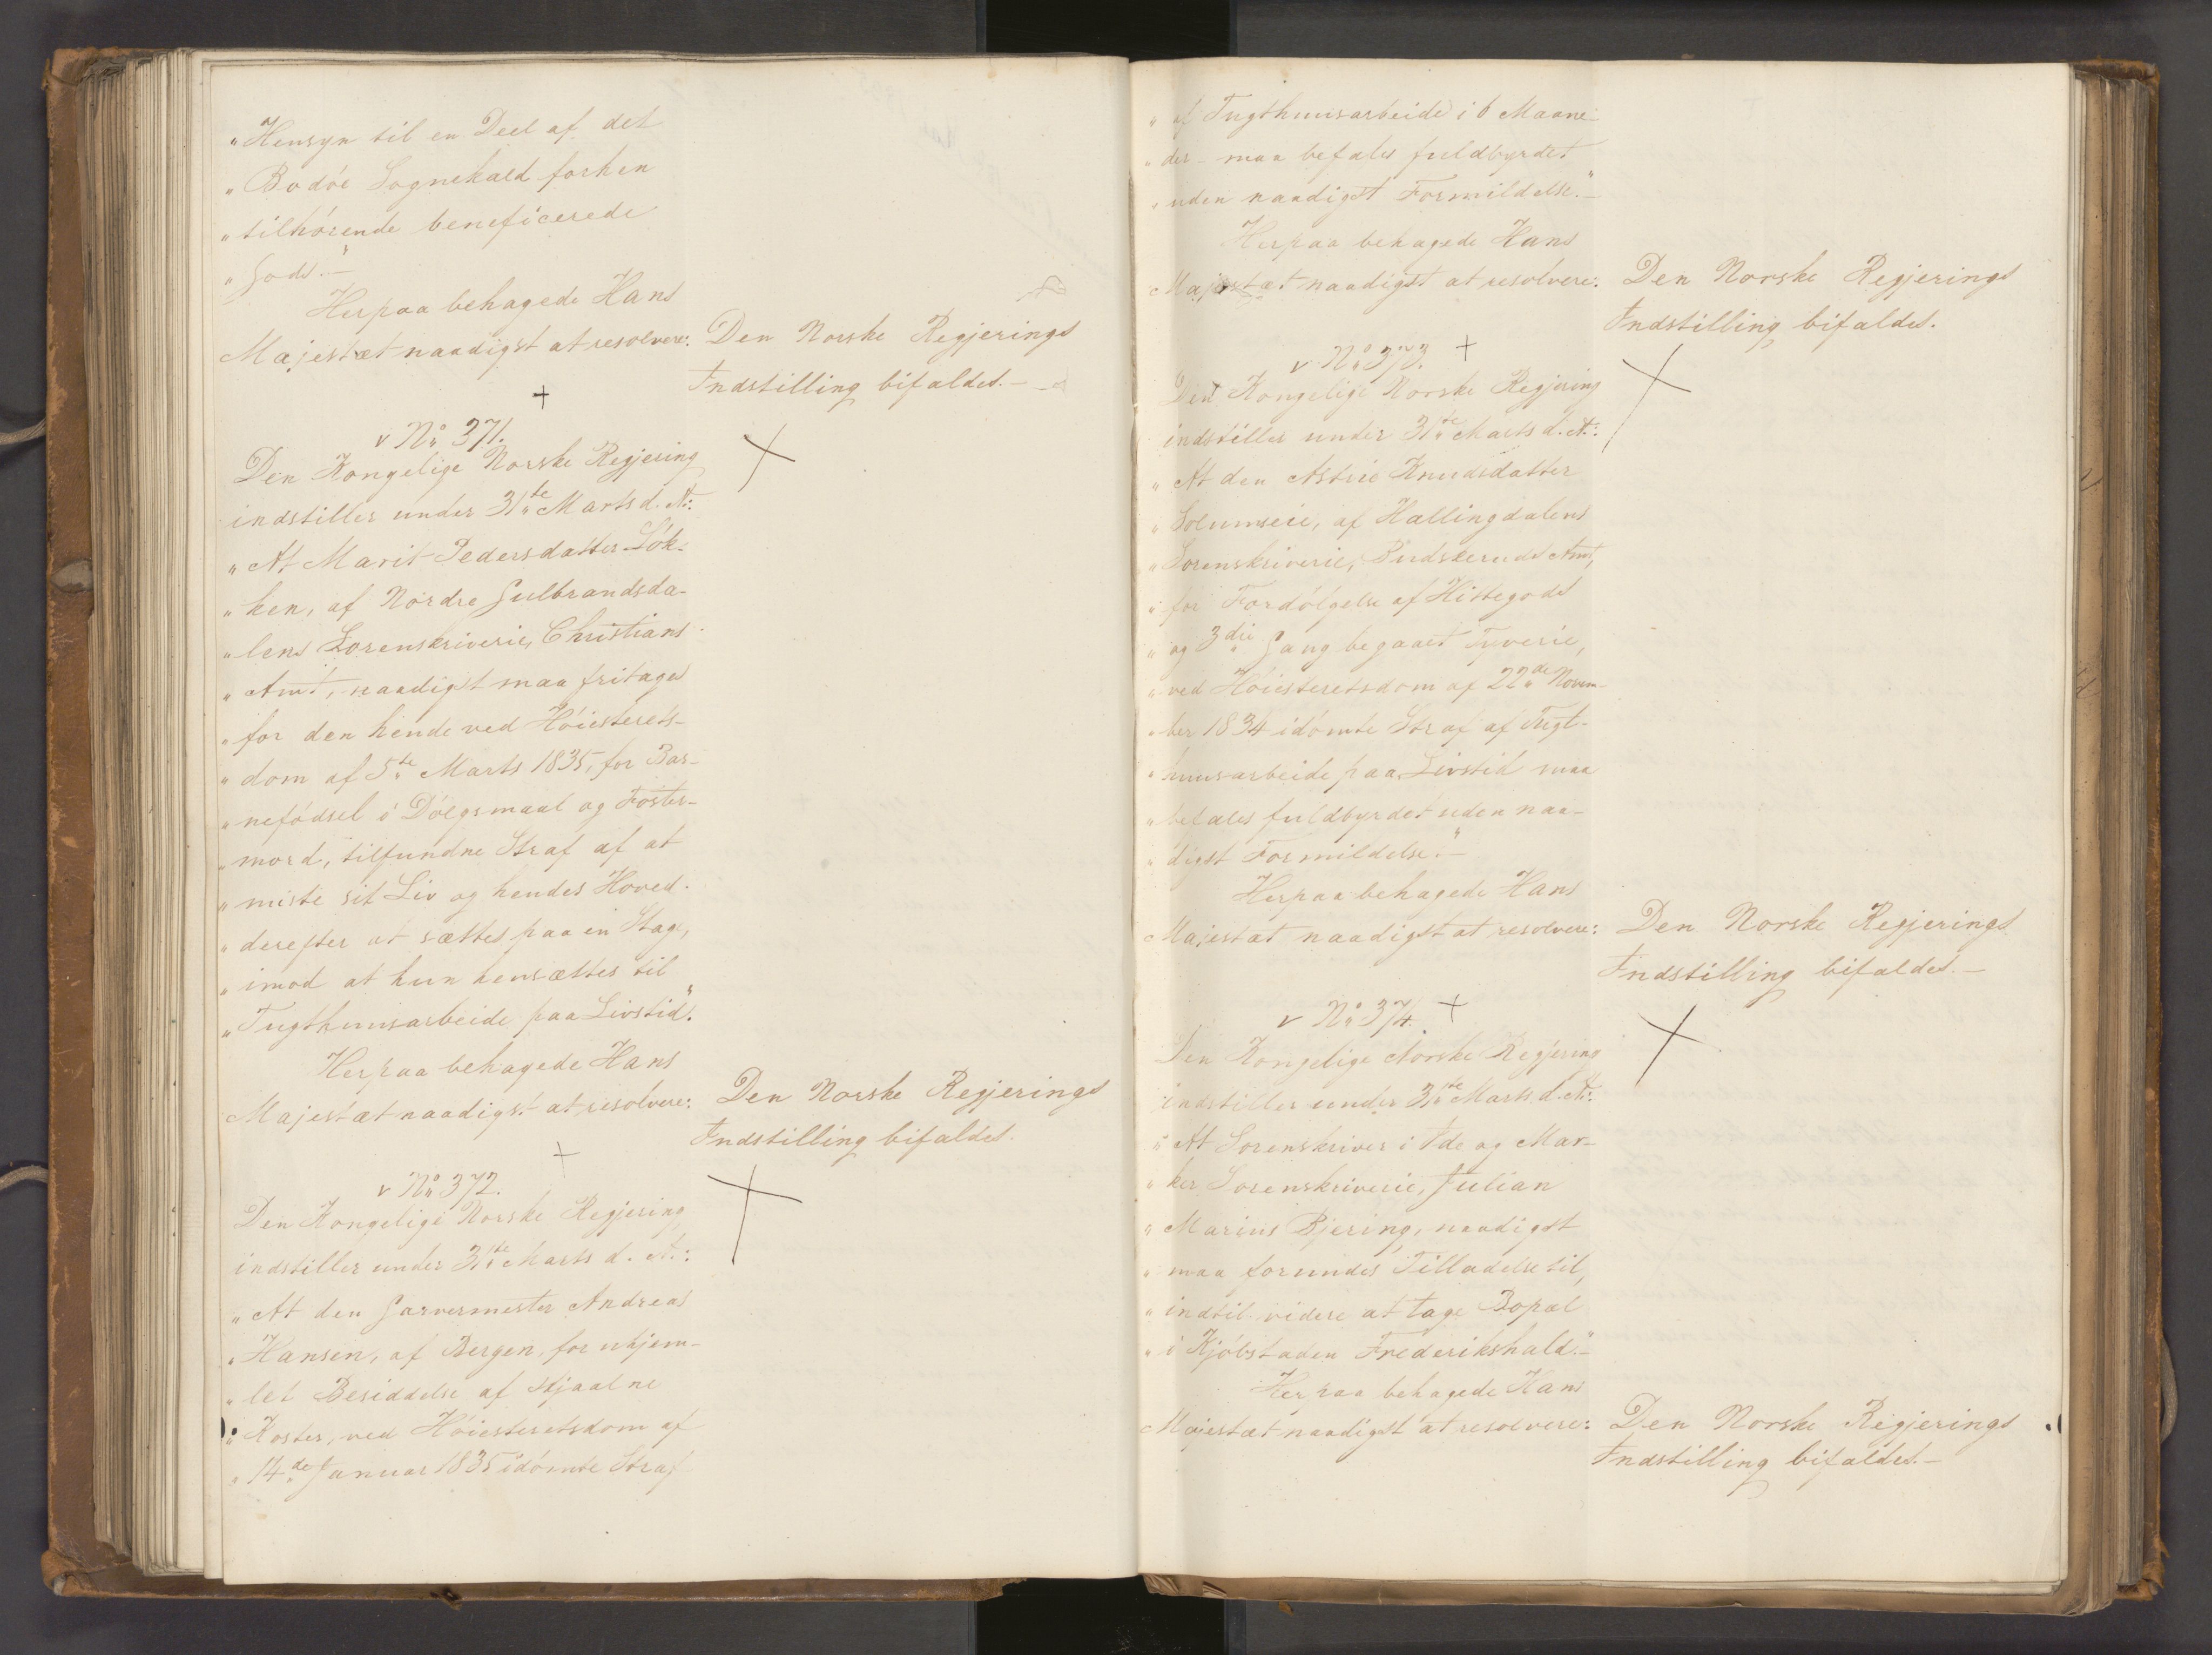 „Hensyn til en Deel af det
„Bodöe Sognekald forhen
„tilhörende beneficerede
„Gods.“—
Herpaa behagede Hans
Majestæt naadigst at resolvere: Den Norske Regjerings
Indstilling bifaldes.—
+
v No 371.
Den Kongelige Norske Regjering
indstiller under 31te Marts d. A:
„At Marit Pedersdatter Lök-
„ken, af Nordre Gulbrandsda-
„lens Sorenskriverie, Christians
„Amt, naadigst maa fritages
„for den hende ved Höiesterets-
„dom af 5te Marts 1835, for Bar-
„nefödsel i Dölgsmaal og Foster-
„mord, tilfundne Straf af at
„miste sit Liv og hendes Hoved
„derefter at sættes paa en Stage,
„imod at hun hensættes til
„Tugthuusarbeide paa Livstid“.
Herpaa behagede Hans
Majestæt naadigst at resolvere: Den Norske Regjerings
Indstilling bifaldes.
+
v No 372.
Den Kongelige Norske Regjering
indstiller under 31te Marts d. A.:
„At den Garvermester Andreas
„Hansen, af Bergen, for uhjem-
„let Besiddelse af stjaalne
„Koster, ved Höiesteretsdom af
„14de Januar 1835 idömte Straf
„af Tugthuusarbeide i 6 Maane-
„der – maa befales fuldbyrdet
„uden naadigst Formildelse.“—
Herpaa behagede Hans
Majestæt naadigst at resolvere: Den Norske Regjerings
Indstilling bifaldes.
v No 373. +
Den Kongelige Norske Regjering
indstiller under 31te Marts d. A.:
„At den Astrie Knudsdatter
„Solumseie, af Hallingdalens
„Sorenskriverie, Budskeruds Amt,
„for Fordölgelse af Hittegods
„og 3die Gang begaaet Tyverie,
„ved Höiesteretsdom af 22de Novem-
„ber 1834 idömte Straf af Tugt-
„huusarbeide paa Livstid maa
„befales fuldbyrdet uden naa-
„digst Formildelse.“—
Herpaa behagede Hans
Majestæt naadigst at resolvere: Den Norske Regjerings
Indstilling bifaldes.—
v No 374. +
Den Kongelige Norske Regjering
indstiller under 31te Marts d. A:
„At Sorenskriver i Ide og Mar-
„ker Sorenskriverie, Julian
„Marius Bjering, naadigst
„maa forundes Tilladelse til,
„indtil videre at tage Bopæl
„i Kjöbstaden Frederikshald.“—
Herpaa behagede Hans
Majestæt naadigst at resolvere: Den Norske Regjerings
Indstilling bifaldes.—